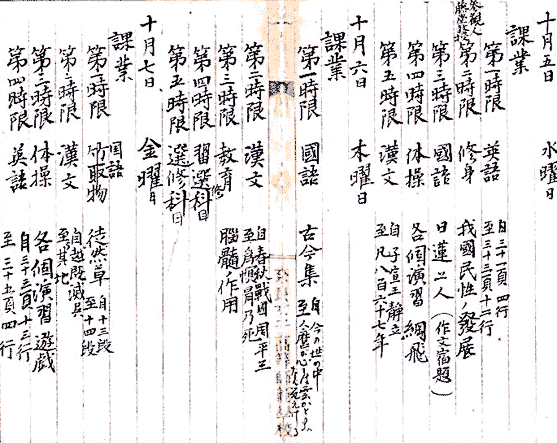 十月五日 水曜日
課業
参観人
第一時限 英語 自三十一頁四行
至三十三頁十二行
第二時限 修身 我國民性ノ發展
第三時限 國語 日蓮上人(作文宿題)
第四時限 体操 各個演習 綱飛
第五時限 漢文 自子宣王静立
至凡八百六十七年
十月六日 木曜日
課業
第一時限 國語 古今集 自今の世の中
至人麿が心
第二時限 漢文 自春秋戦國用平王
第三時限 教育 腦髓ノ作用
第四時限 選修科目
第五時限 選修科目
十月七日 金曜日
課業
第一時限 国語 徒然草 自十三段
至十四段
第二時限 漢文 自越既滅呉
至其北
第三時限 体操 各個演習 遊戯
第四時限 英語 自三十三頁十三行
至三十五頁四行